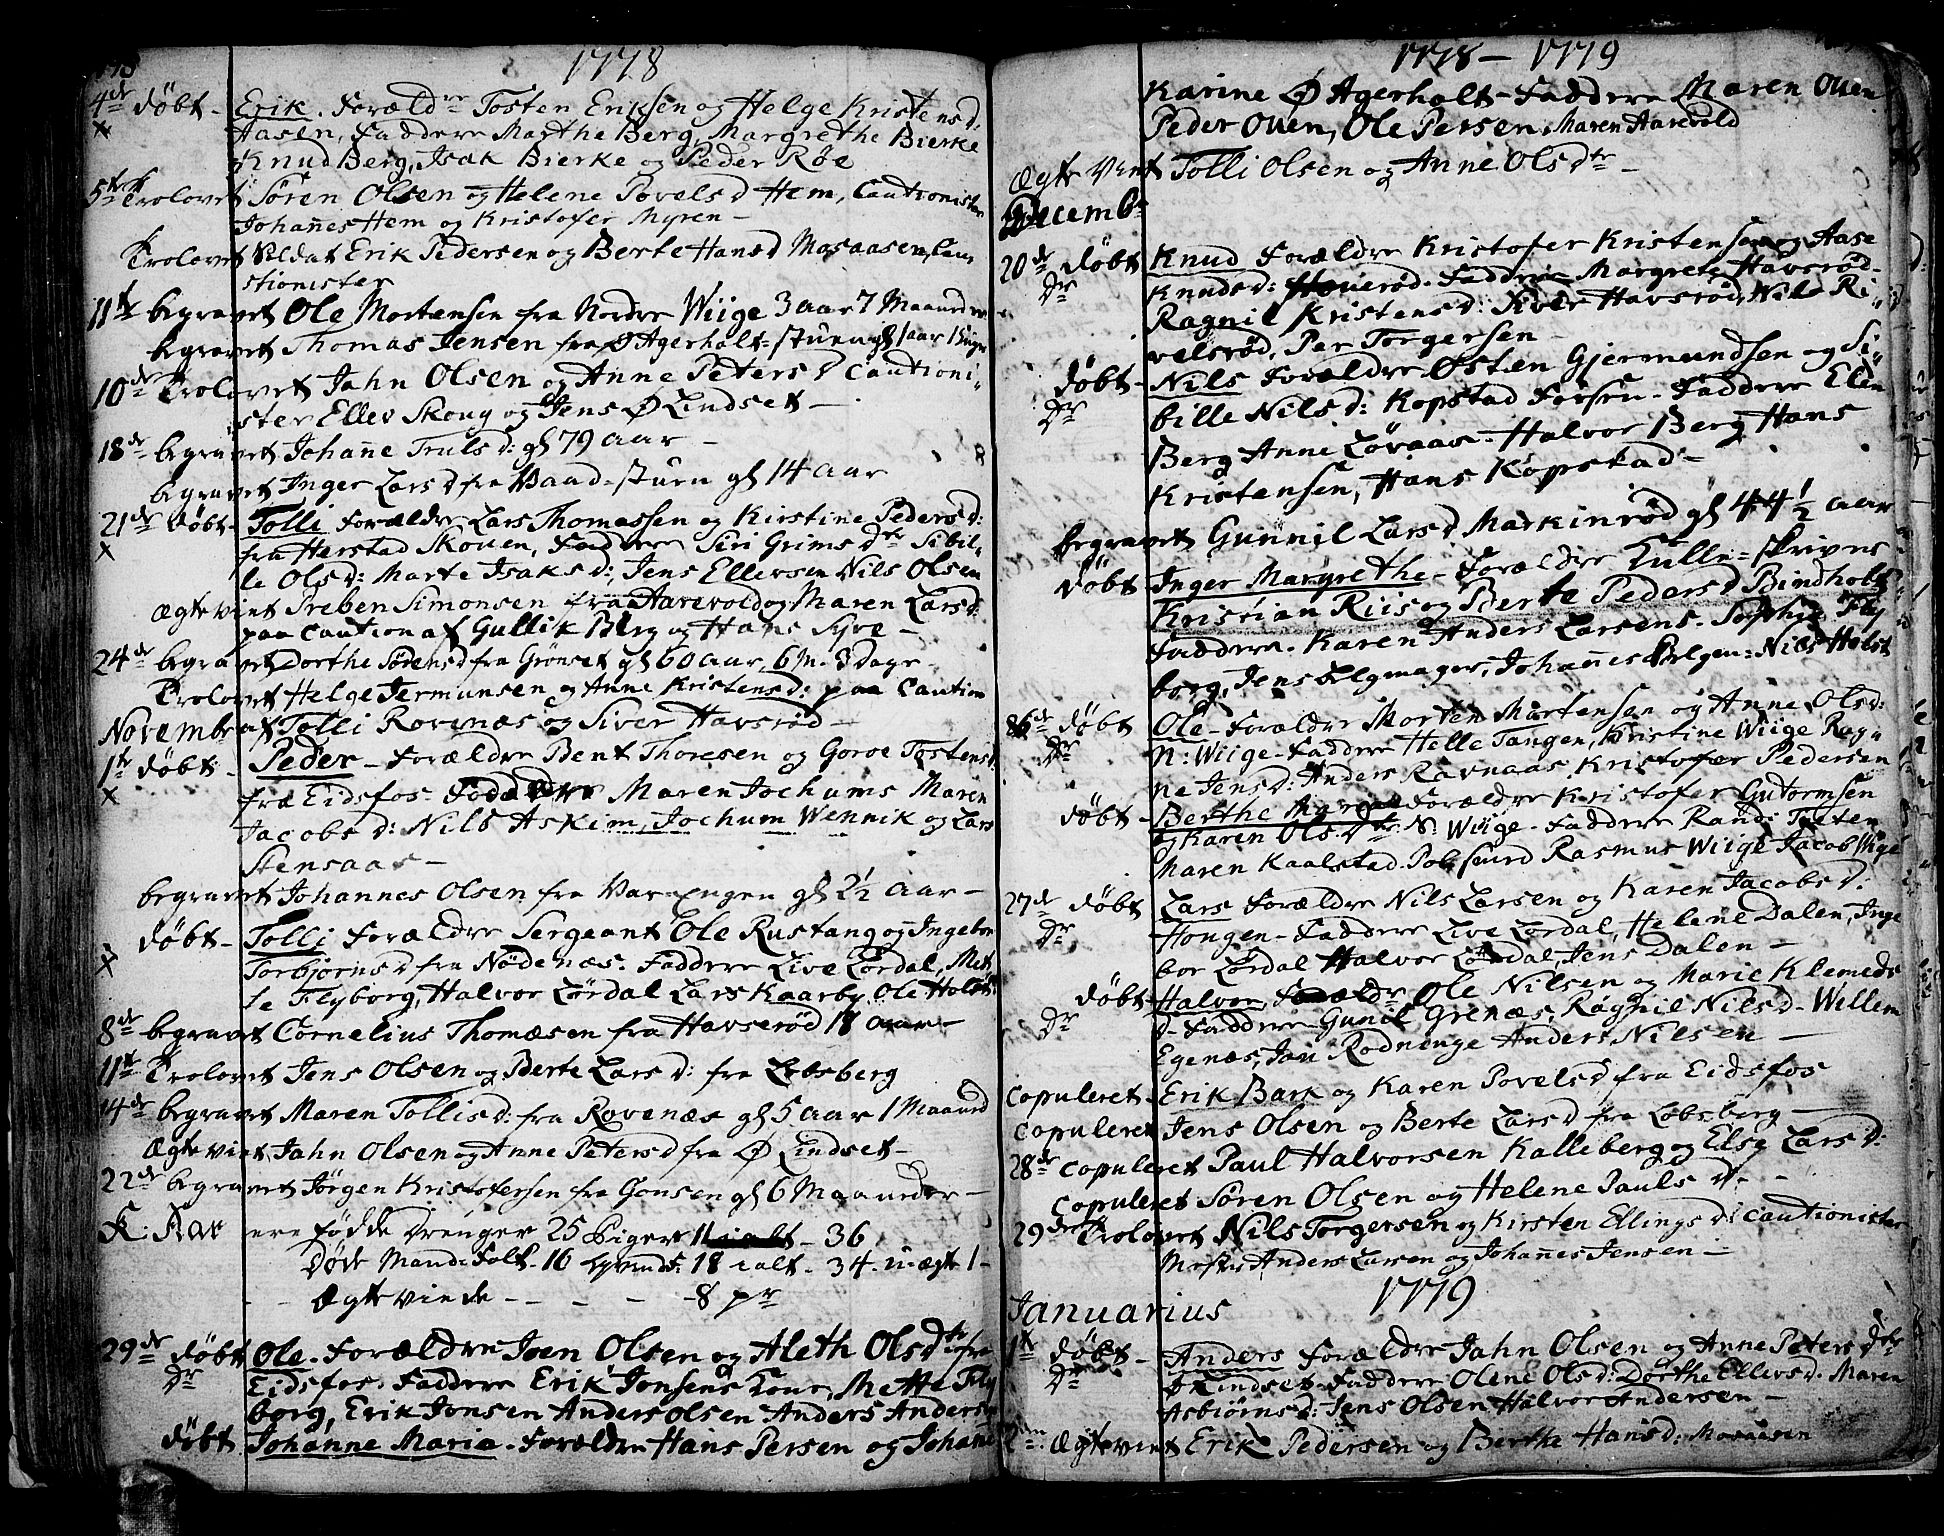 1778
4de døbt - Erik. Foræld re Tosten Eriksen og Helge Kristensd.
Aasen, Faddere Marthe Berg, Margrethe Bierke
Knud Berg, Isak Bierke og Peder Røe
5te Trolovet Søren Olsen og Helene Povelsd Hem, Cautionister
Johannes Hem og Kristofer Myren -
Trolovet Soldat Erik Pedersen og Berte Hansd Mosaasen, Cau
stionister
11te begravet Ole Mortensen fra Nordre Wiige 3 aar 7 Maaneder
begravet Thomas Jensen fra Ø Agerholt-stuen gl 1 aar
10de Trolovet Jahn Olsen og Anne Petersd Cautioni
ster Ellev Skoug og Jens Ø Lindset -
18de begravet Johanne Trulsd: gl 79 aar -
begravet Inger Larsd fra Vaad-stuen gl 14 aar
21de døbt - Tolli Forældre Lars Thomassen og Kirstine Pedersd:
fra Herstad Skouen, Faddere Siri Grimsdtr Sibil-
le Olsd: Marte Isaksd: Jens Ellevsen Nils Olsen
Ægteviet Preben Simonsen fra Aarevold og Maren Larsd:
paa Caution af Gullik Berg og Hans Syve -
24de begravet Dorthe Sørensd fra Grønset gl 60 aar, 6 M. 3 dage -
Trolovet Helge Jermunsen og Anne Kristensd: paa Caution
Novembr af Tolli Rovenæs og Siver Havsrød -
1te døbt - Peder - Forældre Bent Thoresen og Goroe Tostensd.
fra Eidsfos - Faddere Maren Jochums Maren
Jacobsd: Nils Askim, Jochum Wennik og Lars
Stensaas -
begravet Johannes Olsen fra Var-Engen gl 2½ aar -
døbt - Tolli Forældre Sergeant Ole Rustang og Ingebor
Torbjørnsd fra Nødenæs. Faddere Live Lørdal, Met
te Flyborg, Halvor Lørdal Lars Kaarby, Ole Holst
8de begravet Cornelius Thomæsen fra Havserød 18 aar -
11te Trolovet Jens Olsen og Berte Larsd: fra Løbsberg
14de begravet Maren Tollisd: fra Rovenæs gl 5 aar 1 Maaned
Ægteviet Jahn Olsen og Anne Petersd fra Ø Lindset -
22de begravet Jørgen Kristofersen fra Gonsen gl 6 Maaneder -
K: Aar ere fødde Drenger 25 Piger 11 ialt - 36
Døde Mand: Folk 16 qvind: 18 ialt - 34 - u-ægte 1 -
- - Ægteviede - - - - 8 pr
29de døbt Ole. Forældre Joen Olsen og Aleth Olsdtr fra
Eidsfos. Faddere Erik Jonsens Kone, Mette Fly
borg, Erik Jonsen Anders Olsen Anders Andersen
døbt Johanne Maria - Forældre Hans Persen og Johanne
1778 - 1779
Karine Ø Agerholt - Faddere Maren Ouen
Peder Ouen, Ole Persen, Maren Aarevold
Ægte Viet Tolli Olsen og Anne Olsdtr -
Decembr
20de døbt Knud Forældre Kristofer Kristensen og Aase
Dr Knudsd: Faddere Margrete Havsrød
Ragnil Kristensd: Siver Havsrød, Nils Ri
velsrød, Per Torgersen -
døbt - Nils Forældre Østen Gjermundsen og Si
Dr bille Nilsd: Kopstad Forsen - Faddere Elen
Berg Anne Løvaas - Halvor Berg Hans
Kristensen, Hans Kopstad -
begravet Gunnil Larsd Markinrød gl 44½ aar
døbt Inger Margrethe - Forældre Kulle-skriver
Kristian Riis og Berte Pedersd Bindholt
Faddere. Karen Anders Larsens. Sophie Fly
borg, Jens Belgmager, Johannes Belgen: Nils Holst
26de døbt Ole - Forældre Morten Mortensen og Anne Olsd:
Dr N: Wiige - Faddere Helle Tangen, Kristine Wiige Rag
ne Jensd: Anders Ravnaas, Kristofer Pedersen
døbt - Berthe Forældre Kristofer Gutormsen
og Karen Olsdtr N. Wiige - Faddere Randi Tveten
Maren Kaalstad Rasmus Wiige Jacob Wige
27de døbt Lars Forældre Nils Larsen og Karen Jacobsd:
Dr Hougen - Faddere Live Lørdal, Helene Dalen, Inge
bor Lørdal Halvor Lørdal, Jens Dalen -
døbt Halvor, Forældre Ole Nilsen og Marie Klemeds
Dr d - Faddere Gunil Grenæs, Ragnil Nilsd - Willem
Egenæs, Jan Rødninge Anders Nilsen -
Copuleret - Erik Bark og Karen Povelsd fra Eidsfos
Copuleret Jens Olsen og Berte Larsd fra Løbsberg -
28de Copuleret Paul Halvorsen Kalleberg og Else Larsd:
Copuleret Søren Olsen og Helene Pauls D. -
29de Trolovet Nils Torgersen og Kirsten Ellingsd: Cautionister
Anders Larsen og Johannes Jensen -
1779
Januarius
1te døbt - Anders Forældre Jahn Olsen og Anne Peters Dtr
Dr Ø Lindset - Faddere Olene Olsd: Dorthe Ellevsd. Maren
Asbiørnsd: Jens Olsen Halvor Andersen -
Ægteviet Erik Pedersen og Berthe Hansd: Mosaasen